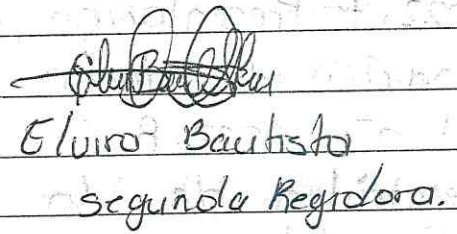 Elvira Bautista
segunda Regidora.